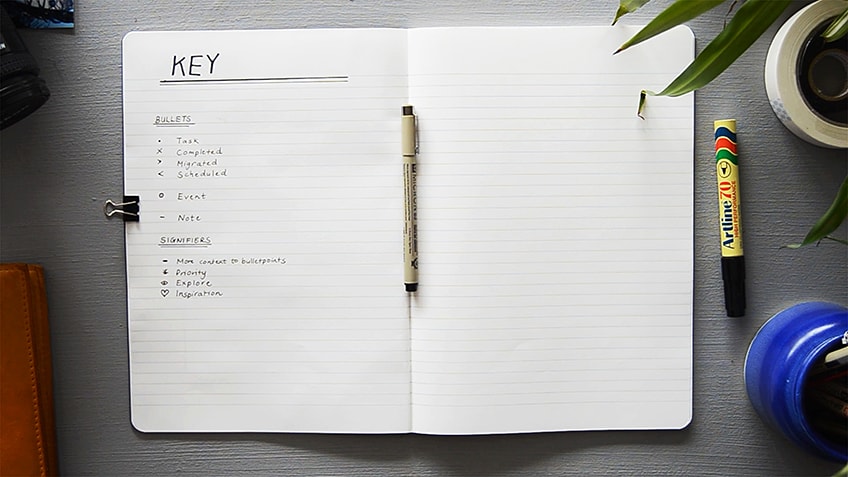 KEY
BULLETS
• Task
× Completed
> Migrated
< Scheduled
o Event
- Note
SIGNIFIERS
- More context to bulletpoints
* Priority
Explore
♡ Inspiration
MICRON
Artline 70
HIGH PERFORMANCE